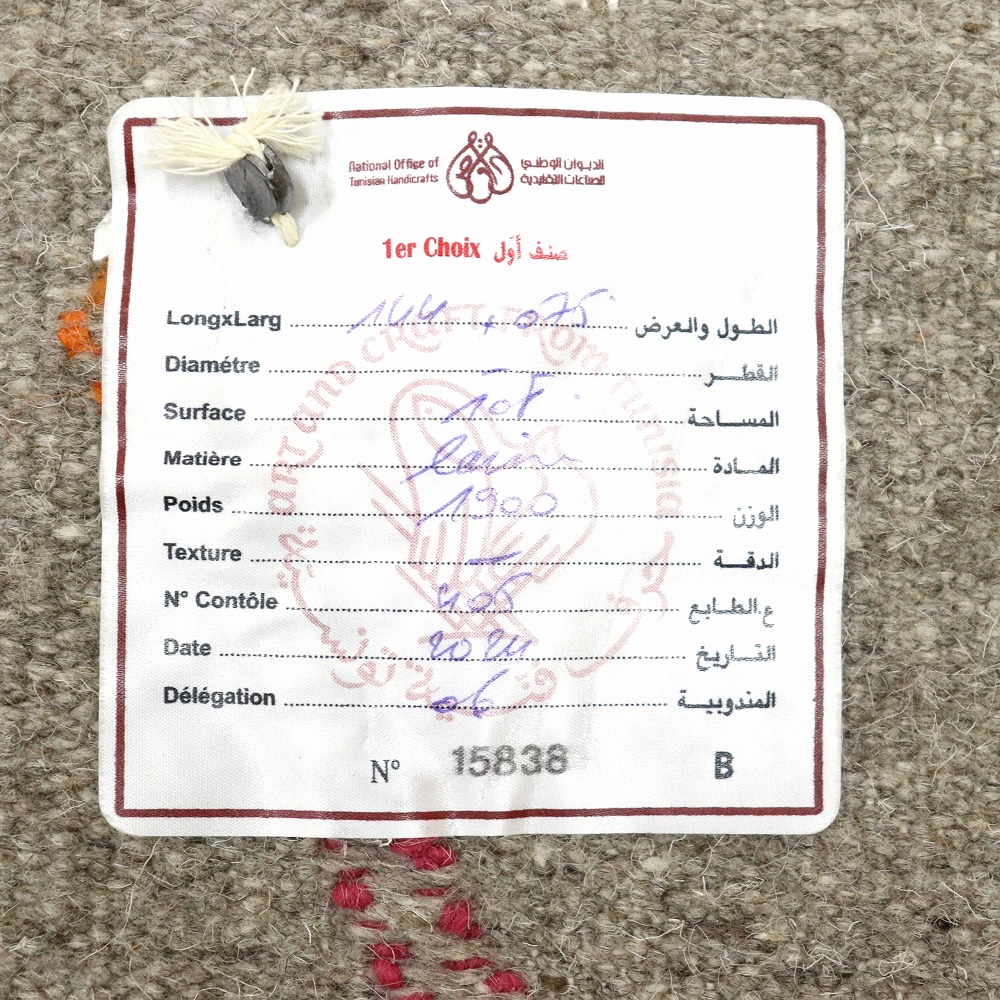 National Office of الديوان الوطني
Tunisian Handicrafts للصناعات التقليدية
1er Choix صنف أوّل
LongxLarg 144 x 075 الطول والعرض
Diamétre - القطر
Surface 108 المساحة
Matière laine المادة
Poids 1900 الوزن
Texture - الدقة
N° Contôle 408 ع.الطابع
Date 2024 التاريخ
Délégation 06 المندوبية
N° 15838 B
ART AND CRAFT FROM TUNISIA